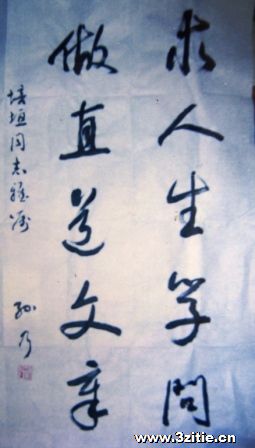 求人生学问
做直道文章
培垣同志雅属
孙乃
www.3zitie.cn